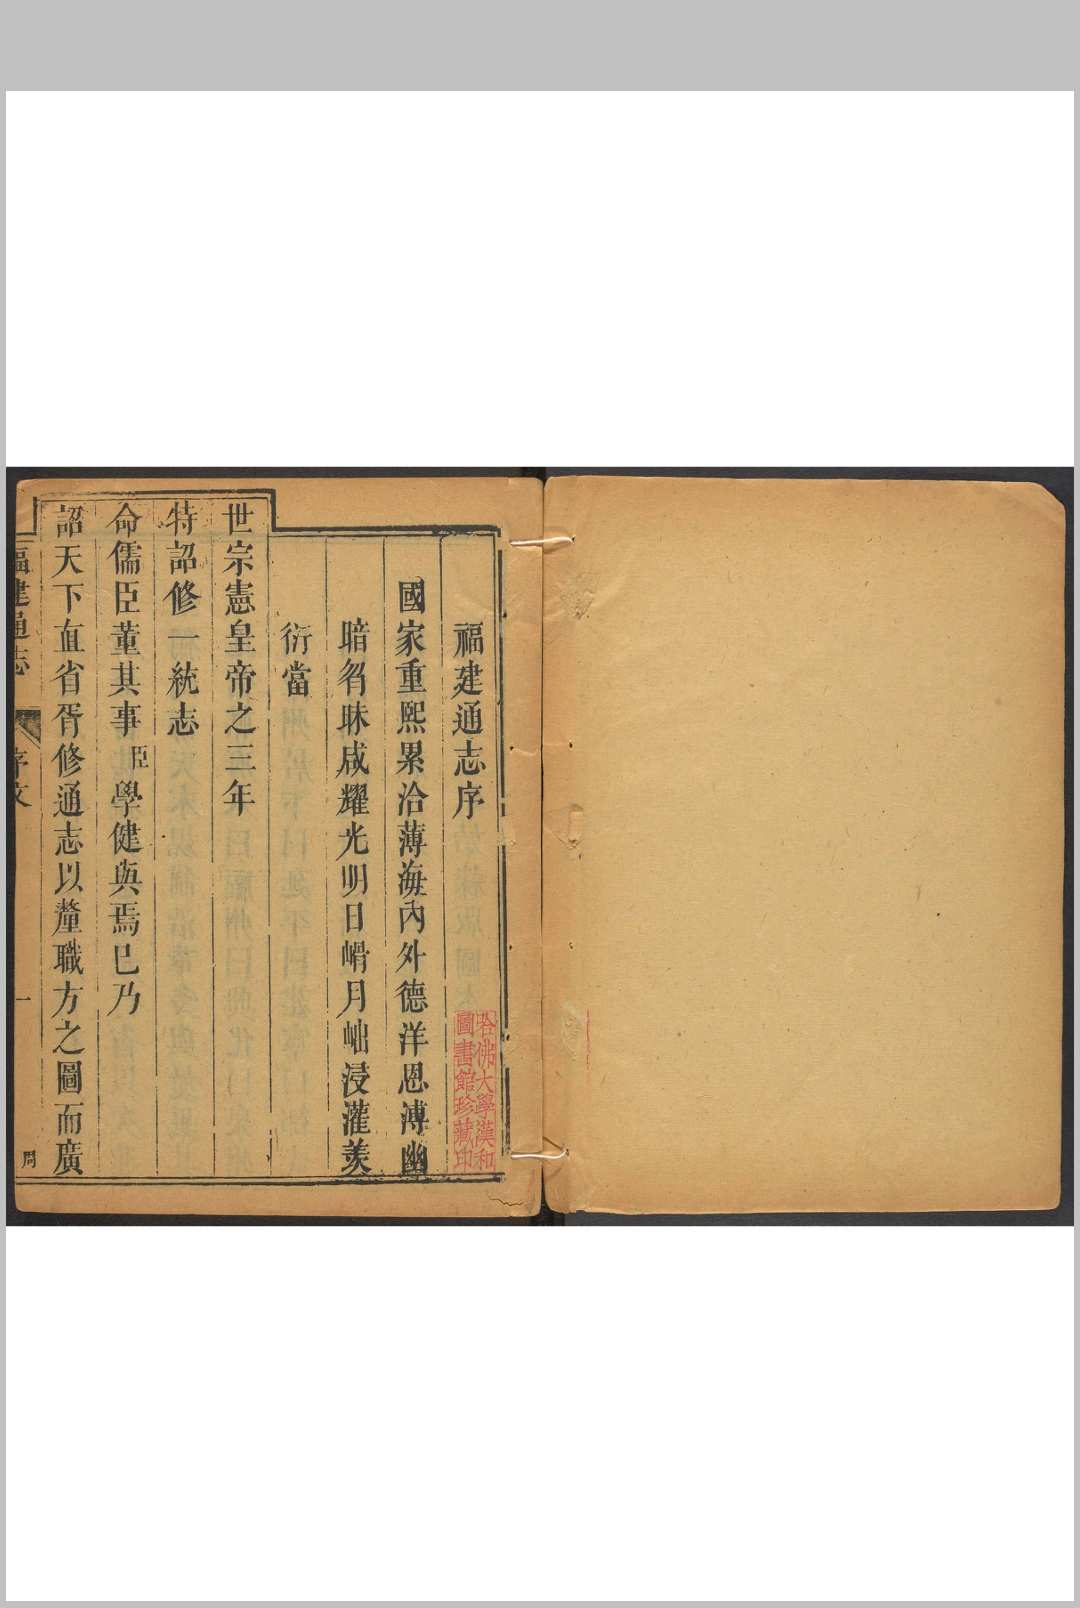 福建通志序
國家重熙累洽薄海內外德洋恩溥幽
暗曶昧咸耀光明日㟙月朏浸灌羨
衍當
世宗憲皇帝之三年
特詔修一統志
命儒臣董其事臣學健與焉巳乃
詔天下直省胥修通志以釐職方之圖而廣
福建通志
序文
一
周
哈佛大學漢和
圖書館珍藏印